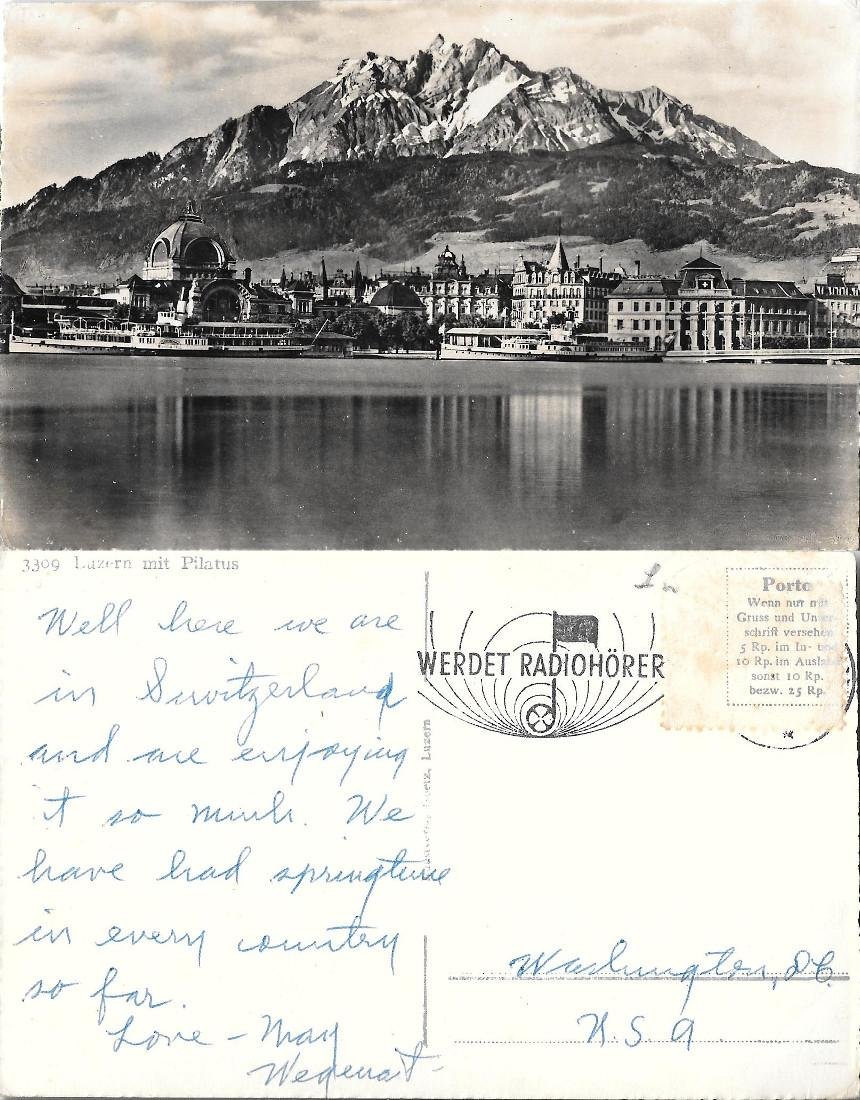 3309 Luzern mit Pilatus
Well here we are
in Switzerland
and are enjoying
it so much. We
have had springtime
in every country
so far.
Love - May
WERDET RADIOHÖRER
Porto
Wenn nur mit
Gruss und Unter-
schrift versehen
5 Rp. im In- und
10 Rp. im Ausland
sonst 10 Rp.
bezw. 25 Rp.
Luzern
Washington, D.C.
U.S.A.